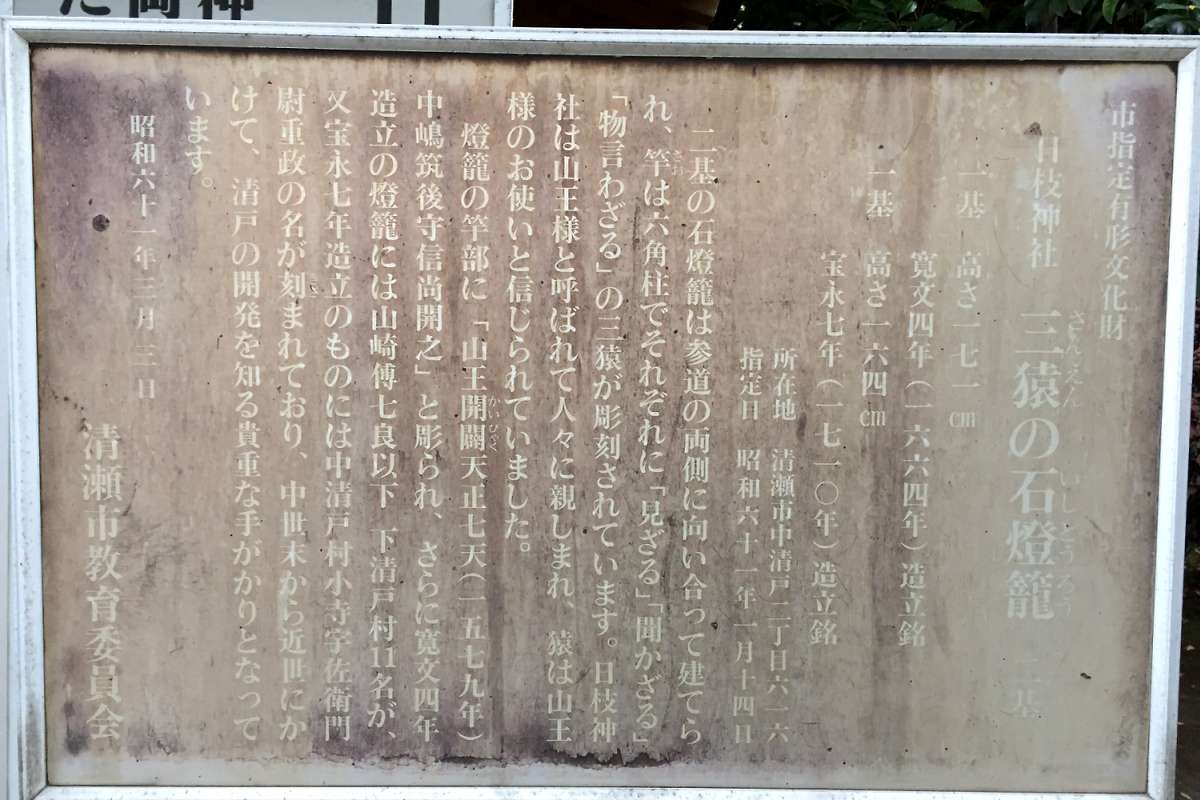 市指定有形文化財
日枝神社 三猿の石燈籠 二基
さんえん いしどうろう
一基 高さ一七一㎝
寛文四年(一六六四年)造立銘
一基 高さ一六四㎝
宝永七年(一七一〇年)造立銘
所在地 清瀬市中清戸二丁目六一六
指定日 昭和六十一年一月十四日
二基の石燈籠は参道の両側に向い合って建てら
れ、竿は六角柱でそれぞれに「見ざる」「聞かざる」
さお
「物言わざる」の三猿が彫刻されています。日枝神
社は山王様と呼ばれて人々に親しまれ、猿は山王
様のお使いと信じられていました。
燈籠の竿部に「山王開闢天正七天(一五七九年)
かいびゃく
中嶋筑後守信尚開之」と彫られ、さらに寛文四年
造立の燈籠には山崎傳七良以下 下清戸村11名が、
又宝永七年造立のものには中清戸村小寺宇佐衛門
尉重政の名が刻まれており、中世末から近世にか
けて、清戸の開発を知る貴重な手がかりとなって
います。
昭和六十一年三月三日
清瀬市教育委員会